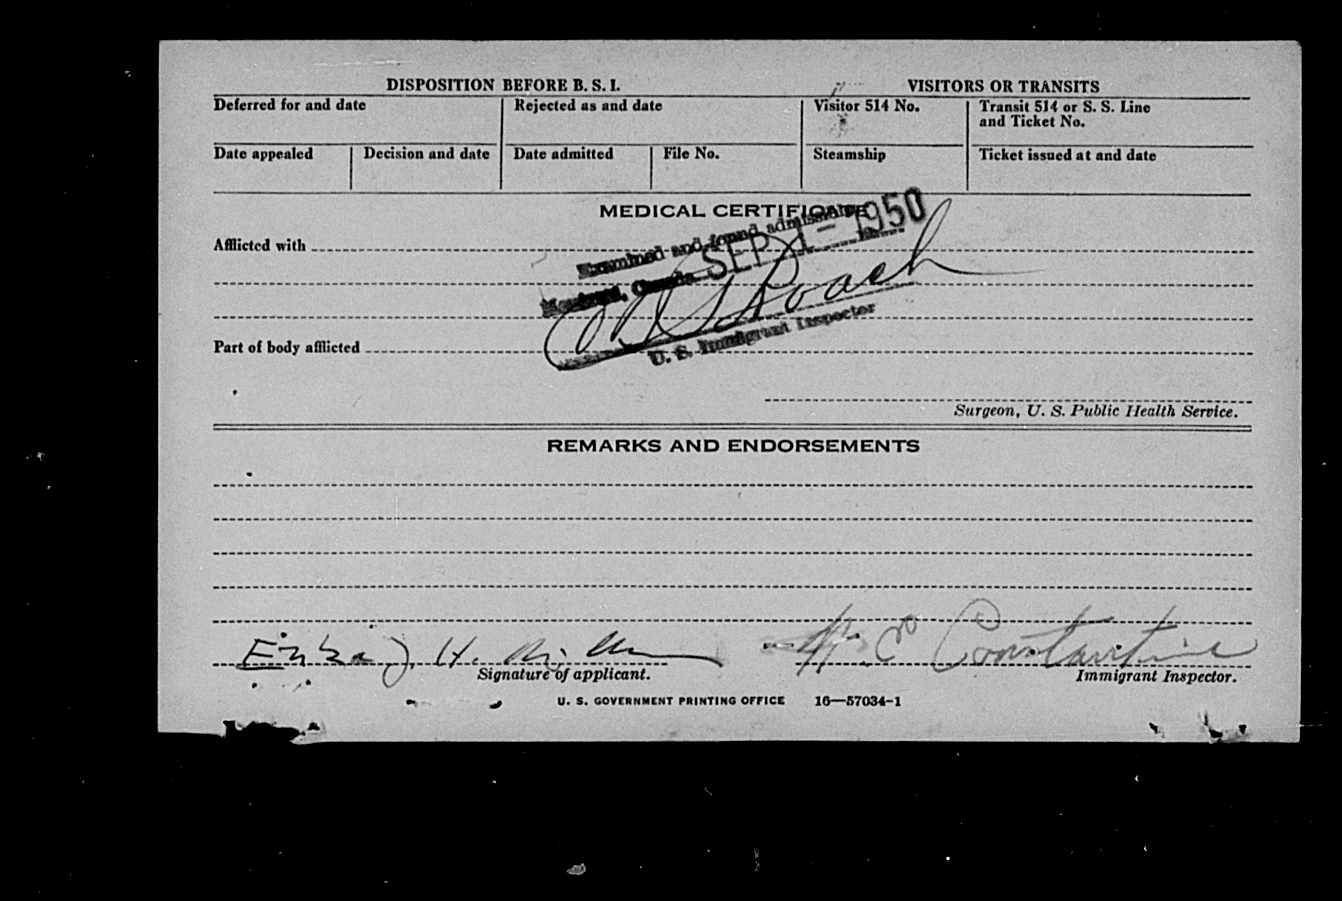 DISPOSITION BEFORE B. S. I.
VISITORS OR TRANSITS
Deferred for and date
Rejected as and date
Visitor 514 No.
Transit 514 or S. S. Line
and Ticket No.
Date appealed
Decision and date
Date admitted
File No.
Steamship
Ticket issued at and date
MEDICAL CERTIFICATE
Examined and found admissible
SEP 1 - 1950
Afflicted with
Montreal, Canada
Roach
U. S. Immigrant Inspector
Part of body afflicted
Surgeon, U. S. Public Health Service.
REMARKS AND ENDORSEMENTS
H.
Constantine
Signature of applicant.
Immigrant Inspector.
U. S. GOVERNMENT PRINTING OFFICE 16—57034-1